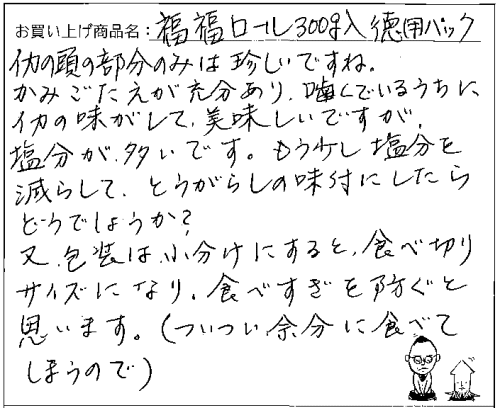 お買い上げ商品名：福福ロール300g入徳用パック
イカの頭の部分のみは珍しいですね。
かみごたえが充分あり、噛んでいるうちに
イカの味がして、美味しいですが、
塩分が、多いです。もう少し塩分を
減らして、とうがらしの味付にしたら
どうでしょうか？
又、包装は、小分けにすると、食べ切り
サイズになり、食べすぎを防ぐと
思います。（ついつい余分に食べて
しまうので）